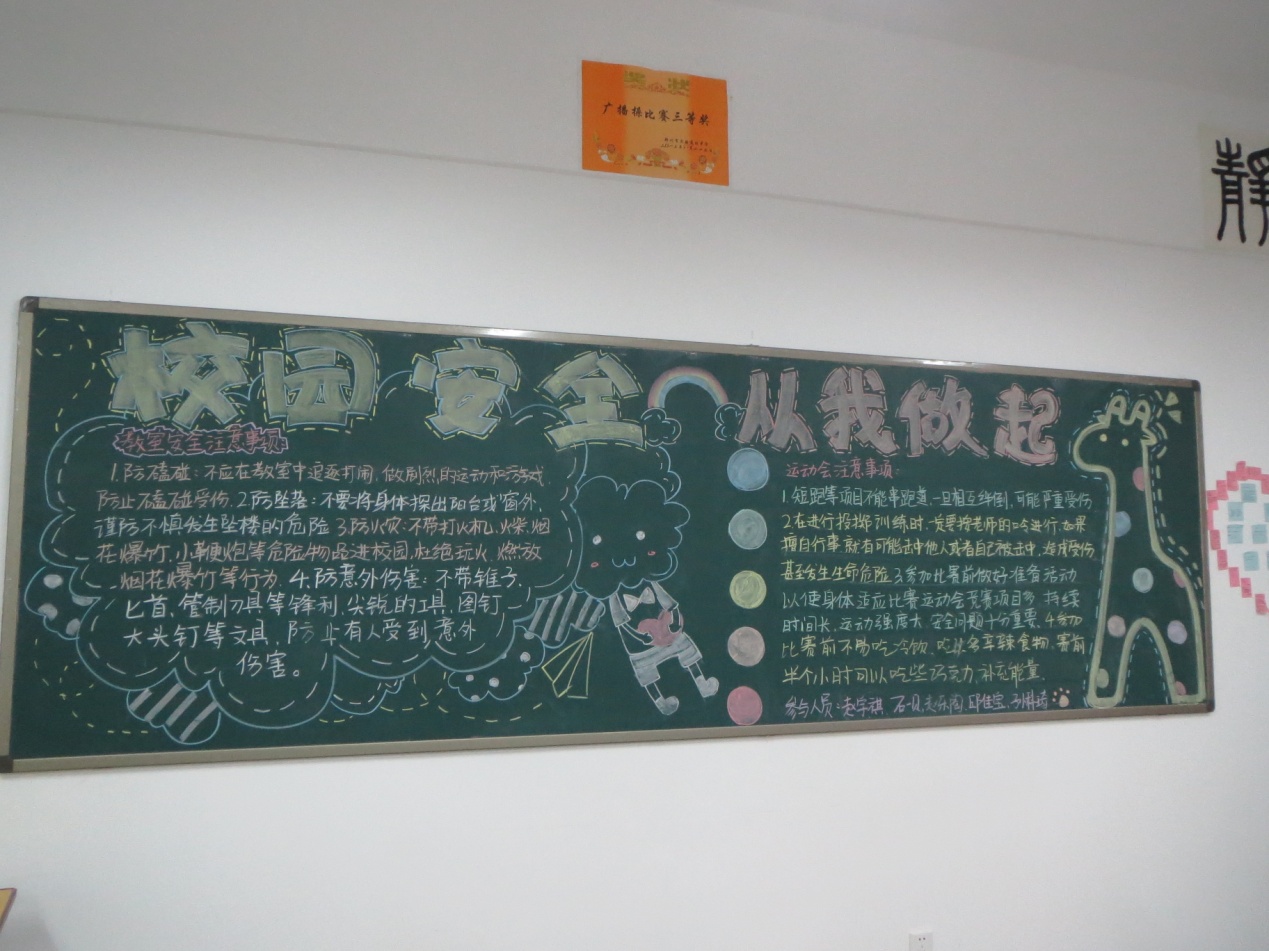 广播操比赛三等奖
靜
校园安全 从我做起
教室安全注意事项
1.防磕碰:不应在教室中追逐打闹,做剧烈的运动和游戏,
防止磕碰受伤.2.防坠落:不要将身体探出阳台或窗外,
谨防不慎发生坠楼的危险 3.防火灾:不带打火机、火柴、烟
花爆竹、小鞭炮等危险物品进校园,杜绝玩火、燃放
烟花爆竹等行为.4.防意外伤害:不带锥子、
匕首、管制刀具等锋利、尖锐的工具,图钉、
大头钉等文具,防止有人受到意外
伤害。
运动会注意事项:
1.短跑等项目不能串跑道,一旦相互绊倒,可能严重受伤
2.在进行投掷训练时,一定要按老师的口令进行,如果
擅自行事就有可能击中他人或者自己被击中,造成受伤
甚至发生生命危险.3.参加比赛前做好准备活动
以使身体适应比赛运动会竞赛项目多,持续
时间长,运动强度大,安全问题十分重要.4.参加
比赛前不易吃冷饮、吃过多辛辣食物,赛前
半个小时可以吃些巧克力,补充能量.
参与人员: